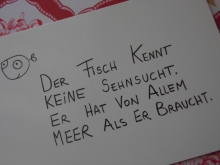 DER FISCH KENNT
KEINE SEHNSUCHT.
ER HAT VON ALLEM
MEER ALS ER BRAUCHT.